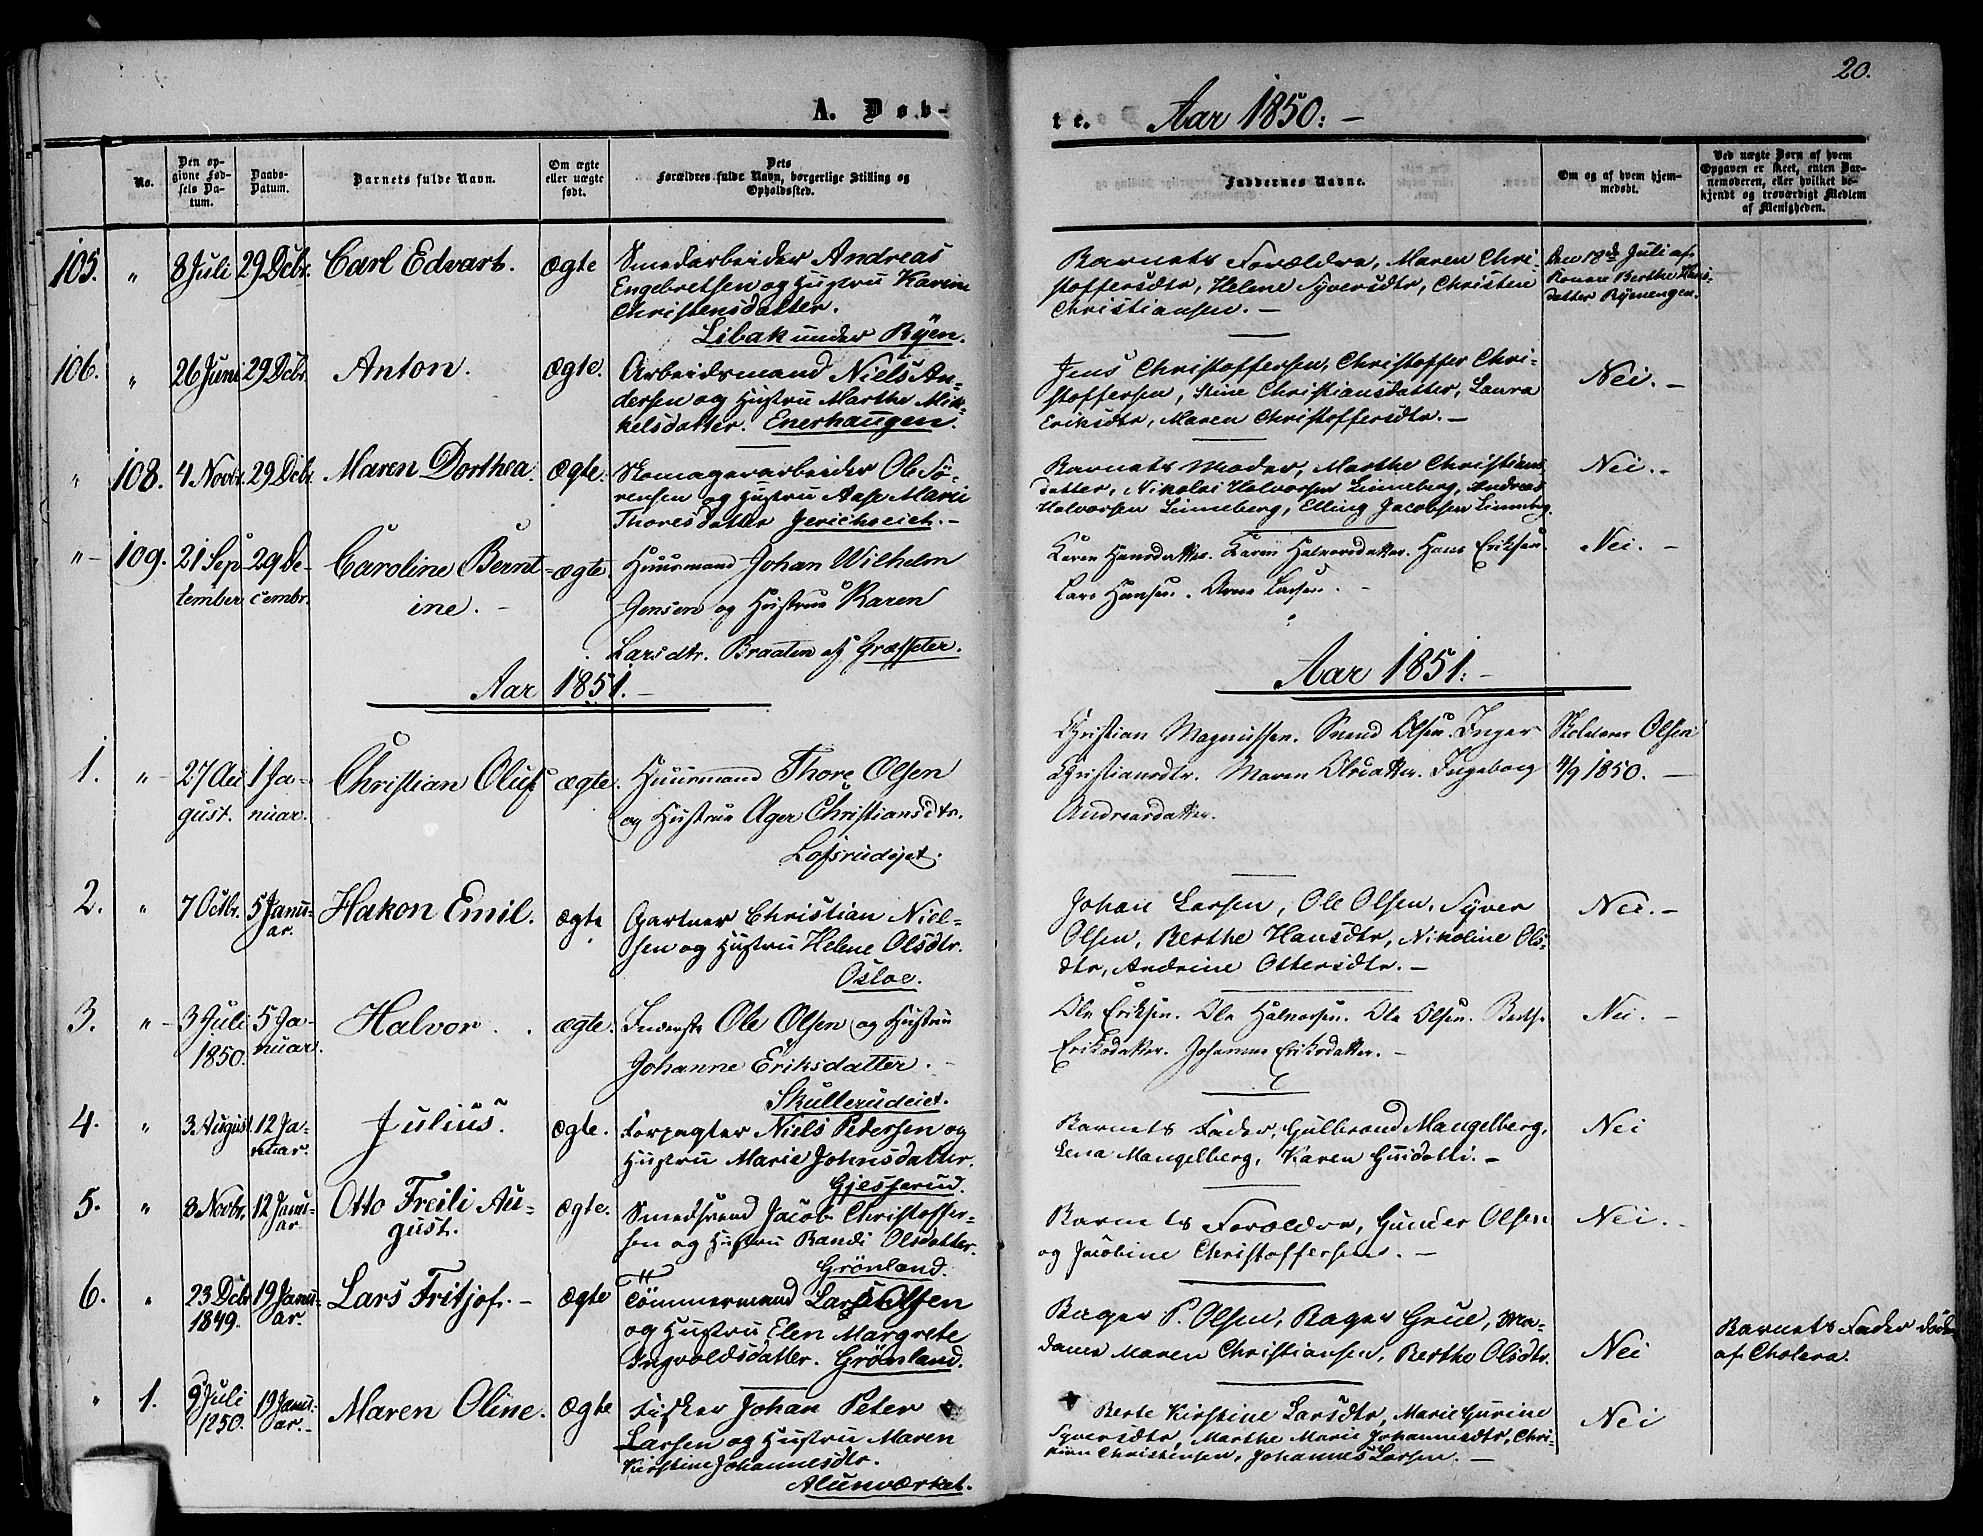 20.
A. Døb-
te. Aar 1850.
No.
Den op-
givne Fød-
sels Da-
tum.
Daabs-
Datum.
Barnets fulde Navn.
Om ægte
eller uægte
født.
Dets
Forældres fulde Navn, borgerlige Stilling og
Opholdssted.
Faddernes Navne.
Om og af hvem hjem-
medøbt.
Ved uægte Børn af hvem
Opgaven er skeet, enten Bar-
nemoderen, eller hvilket be-
kjendt og troværdigt Medlem
af Menigheden.
105. " 8 Juli 29 Dcbr. Carl Edvart. Ægte
Smedarbeider Andreas
Engebretsen og Hustru Karine
Christensdatter.
Libak under Ryen.
Barnets Forældre, Maren Chri-
stoffersdtr, Helene Syversdtr, Christen
Christiansen. -
Den 18de Juli af
Konen Berthe Hans-
datter Ryenengen.
106. " 26 Juni 29 Dcbr. Anton. Ægte.
Arbeidsmand Niels An-
dersen og Hustru Marthe Mik-
kelsdatter. Enerhaugen.
Jens Christoffersen, Christoffer Chri-
stoffersen, Stine Christiansdatter, Laura
Eriksdtr, Maren Christoffersdtr. -
Nei. -
" 108. 4 Novbr. 29 Dcbr. Maren Dorthea. Ægte.
Skomagerarbeider Ole Sö-
rensen og Hustru Aase Marie
Thoresdatter Jerichoeiet. -
Barnets Moder, Marthe Christians-
datter, Nikolai Halvorsen Linneberg, Andreas
Halvorsen Linneberg, Elling Jacobsen Linneberg.
Nei. -
" 109. 21 Sep- 29 De- Caroline Bernt- ægte.
tember cembr. ine. -
Huusmand Johan Wilhelm
Jensen og Hustrue Karen
Larsdtr. Braaten af Græsseter.
Karen Hansdatter. Karen Halvorsdatter. Hans Eriksen.
Lars Hansen. Arne Larsen. -
Nei. -
Aar 1851. -
Aar 1851. -
1. " 27 Au- 1 Ja- Christian Oluf ægte.
gust. nuar.
Huusmand Thore Olsen
og Hustrue Ager Christiansdtr.
Lofsrudejet.
Christian Magnussen. Svend Olsen. Inger
Christiansdtr. Maren Olsdatter. Ingeborg
Andreasdatter.
Skolelærer Olsen
4/9 1850. -
2. " 7 Octbr. 5 Janu- Hakon Emil. ægte
ar.
Gartner Christian Niel-
sen og Hustru Helene Olsdtr.
Osloe.
Johan Larsen, Ole Olsen, Syver
Olsen, Berthe Hansdtr, Nikoline Ols-
dtr, Andrine Ottersdtr. -
Nei. -
3. " 3 Juli 5 Ja- Halvor. ægte.
1850. nuar.
Inderste Ole Olsen og Hustrue
Johanne Eriksdatter. -
Skullerudeiet.
Ole Eriksen. Ole Halvorsen. Ole Olsen. Berthe
Eriksdatter. Johanne Eriksdatter. -
Nei. -
4. " 3 August 12 Ja- Julius. Ægte.
nuar.
Forpagter Niels Petersen og
Hustru Marie Johnsdatter.
Gjesserud.
Barnets Fader, Gulbrand Mangelberg,
Lena Mangelberg, Karen Guidotti. -
Nei
5. " 8 Novbr. 12 Janu- Otto Freili Au- Ægte.
ar. gust.
Smedsvend Jacob Christoffer-
sen og Hustru Randi Olsdatter.
Grönland.
Barnets Forældre, Gunder Olsen
og Jacobine Christoffersen. -
Nei. -
6. " 23 Dcbr 19 Janu- Lars Fritjof. - Ægte
1849. ar.
Tömmermand Lars Olsen
og Hustru Elen Margrete
Ingvoldsdatter. Grönland.
Bager P. Olsen, Bager Grue, Ma-
dame Maren Christiansen, Berthe Olsdtr.
Nei
Barnets Fader døde
af Cholera.
" 1. 9 Juli 19 Janu- Maren Oline. Ægte
1850. ar. -
Fisker Johan Peter
Larsen og Hustru Maren
Kirstine Johannesdtr.
Alunværket.
Berte Kirstine Larsdtr, Marie Gurine
Syversdtr, Marthe Marie Johannesdtr, Chri-
stian Christensen, Johannes Larsen. -
Nei